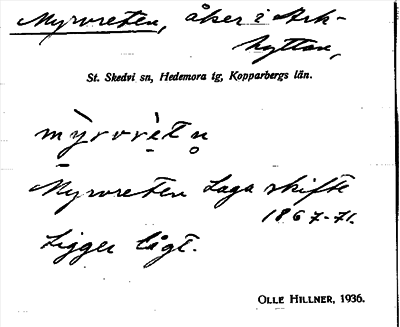 Myrvreten, åker i Ark-
hyttan,
St. Skedvi sn, Hedemora tg, Kopparbergs län.
Myrvreten Laga skifte
1867-71.
Ligger lågt.
OLLE HILLNER, 1936.